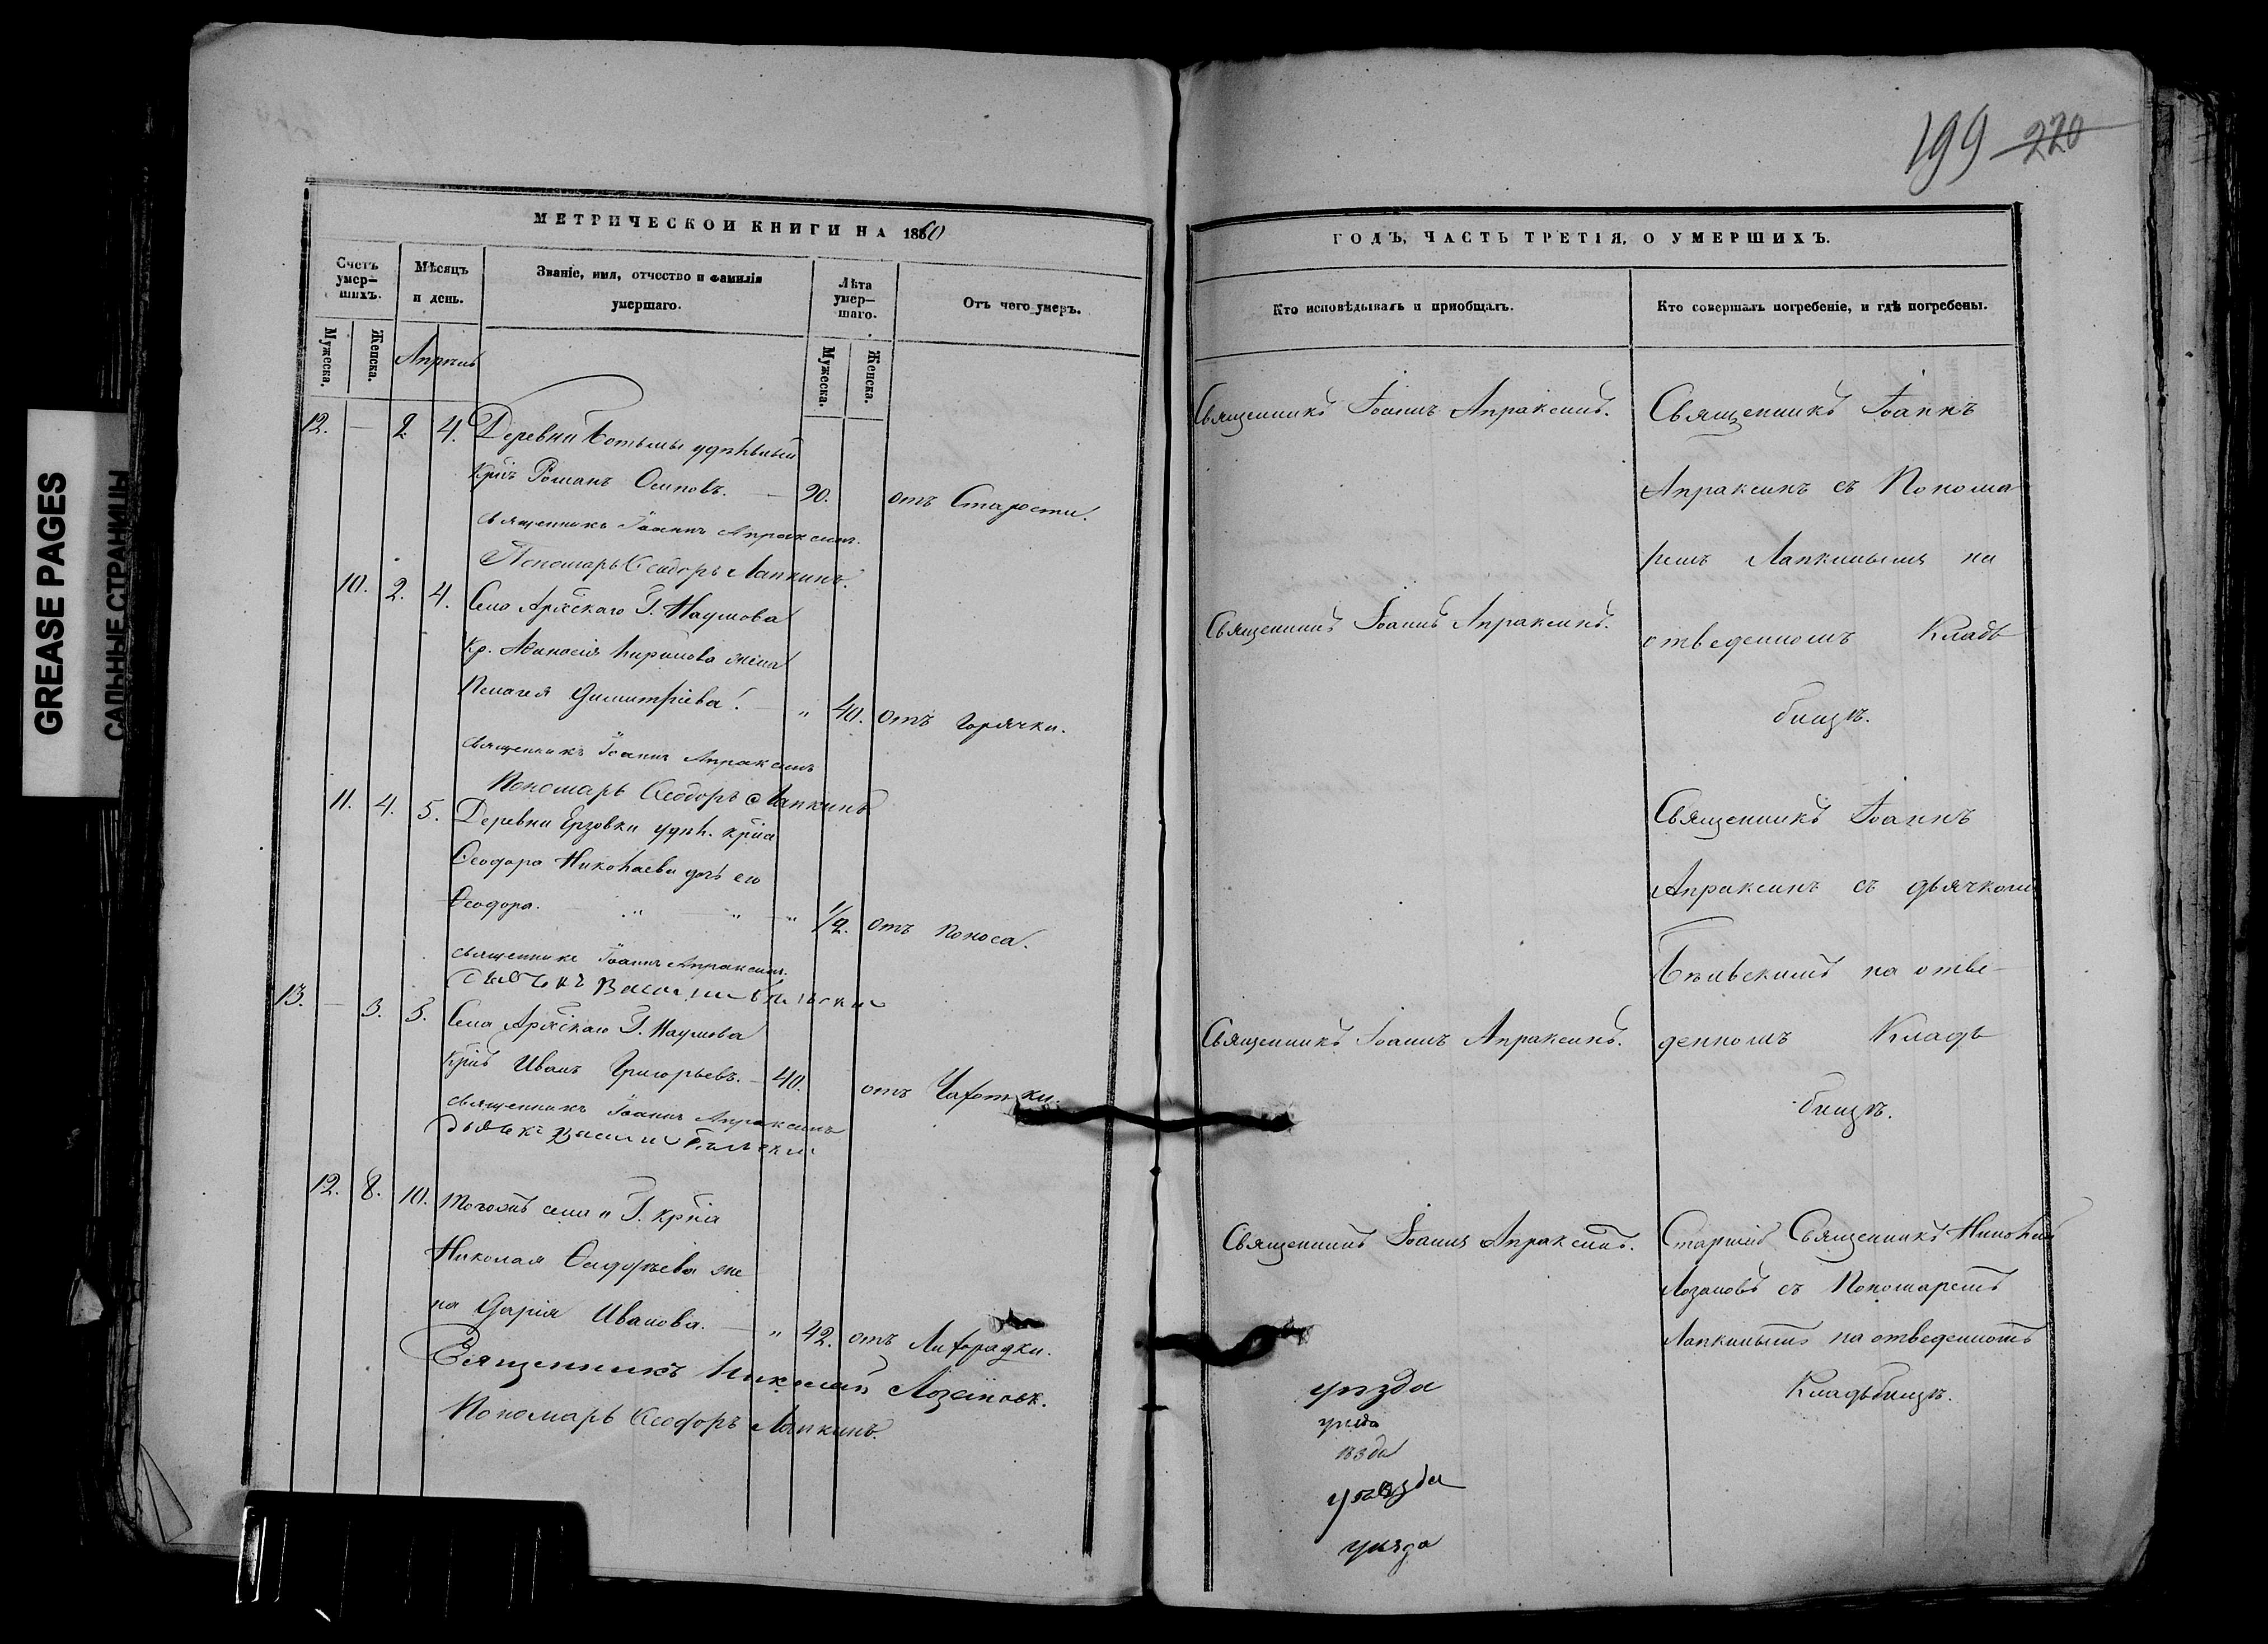 199 220
МЕТРИЧЕСКОЙ КНИГИ НА 1860
ГОДЪ, ЧАСТЬ ТРЕТІЯ, О УМЕРШИХЪ.
Счетъ умер-шихъ.
Мѣсяцъ и день.
Званіе, имя, отчество и фамилія умершаго.
Лѣта умер-шаго.
Отъ чего умеръ.
Кто исповѣдывалъ и пріобщалъ.
Кто совершалъ погребеніе, и гдѣ погребены.
Мужеска.
Женска.
Апрѣль
Мужеска.
Женска.
12. — 2 4. Деревни удѣльный
Кр҃нъ Романъ Осиповъ. — 90. отъ Старости.
Священникъ Іоаннъ Апраксинъ.
Пономарь Ѳеодоръ Лапкинъ.
10. 2. 4. Села Г. Наумова
Кр. Аѳанасія Кирилова жена
Пелагея Димитріева. — " 40. отъ горячки.
Священникъ Іоаннъ Апраксинъ
Пономарь Ѳеодоръ Лапкинъ
11. 4. 5. Деревни Ерзовки удѣл. кр҃на
Ѳеодора Николаева дочь его
Ѳеодора. " " " 1/2. отъ поноса.
Священникъ Іоаннъ Апраксинъ.
Дьячекъ Василій Бѣльскій
13. — 3. 5. Села Г. Наумова
Кр҃нъ Иванъ Григорьевъ. — 40. отъ Чахотки.
Священникъ Іоаннъ Апраксинъ
Дьячекъ Василій Бѣльскій
12. 8. 10. Тогожъ села и Г. кр҃на
Николая же
на Дарія Иванова. — " 42. отъ Лихорадки.
Священникъ Николай Лозановъ.
Пономарь Ѳеодоръ Лапкинъ.
Священникъ Іоаннъ Апраксинъ.
Священникъ Іоаннъ Апраксинъ.
Священникъ Іоаннъ Апраксинъ.
Священникъ Іоаннъ Апраксинъ.
уѣзда
уѣзда
ѣзда
уѣзда
уѣзда
Священникъ Іоаннъ
Апраксинъ съ Понома
ремъ Лапкинымъ на
отведенномъ Кладь
бищѣ.
Священникъ Іоаннъ
Апраксинъ съ дьячкомъ
Бѣльскимъ на отве-
денномъ Кладь
бищѣ.
Старшій Священникъ Николай
Лозановъ съ Пономаремъ
Лапкинымъ на отведенномъ
Кладьбищѣ.
GREASE PAGES
САЛЬНЫЕ СТРАНИЦЫ